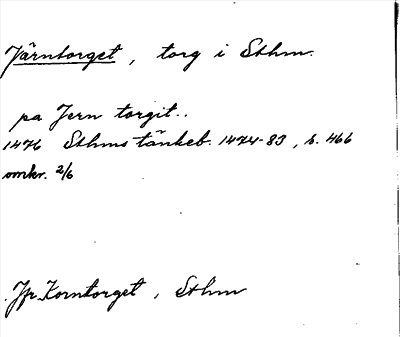 Järntorget, torg i Sthm.
pa Jern torgit..
1476 Sthms tänkeb. 1474-83, s. 466
omkr. 2/6
Jfr Korntorget, Sthm